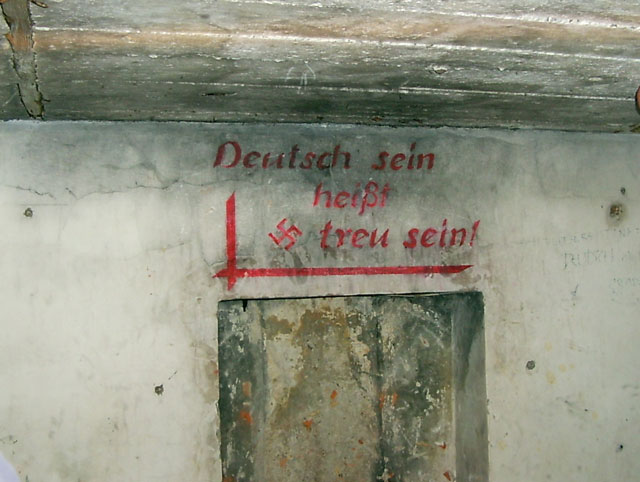 Deutsch sein
heißt
treu sein!